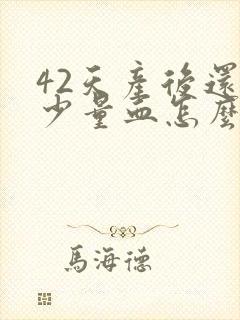 42天產後還
少量血怎麼
馬海德